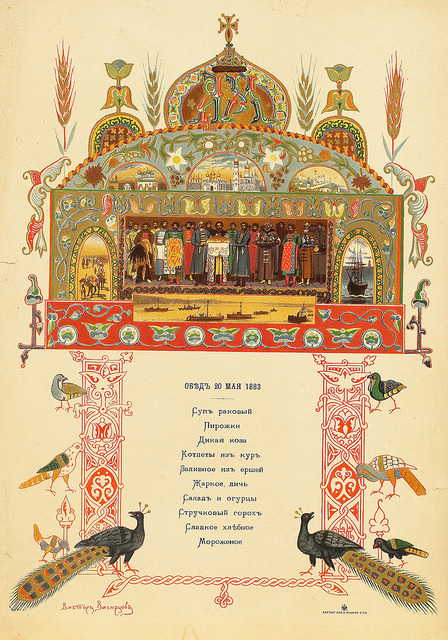 ОБѢДЪ 20 МАЯ 1883
Супъ раковый
Пирожки
Дикая коза
Котлеты изъ куръ
Заливное изъ ершей
Жаркое, дичь
Саладъ и огурцы
Стручковый горохъ
Сладкое хлѣбное
Мороженое
Викторъ Васнецовъ